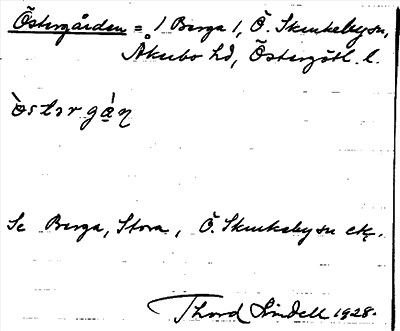 Östergården = 1 Berga 1, Ö. Skrukeby sn,
Åkerbo hd, Östergötl. l.
òstərgáṇ
Se Berga, Stora, Ö. Skrukeby sn etc.
Thord Lindell 1928.